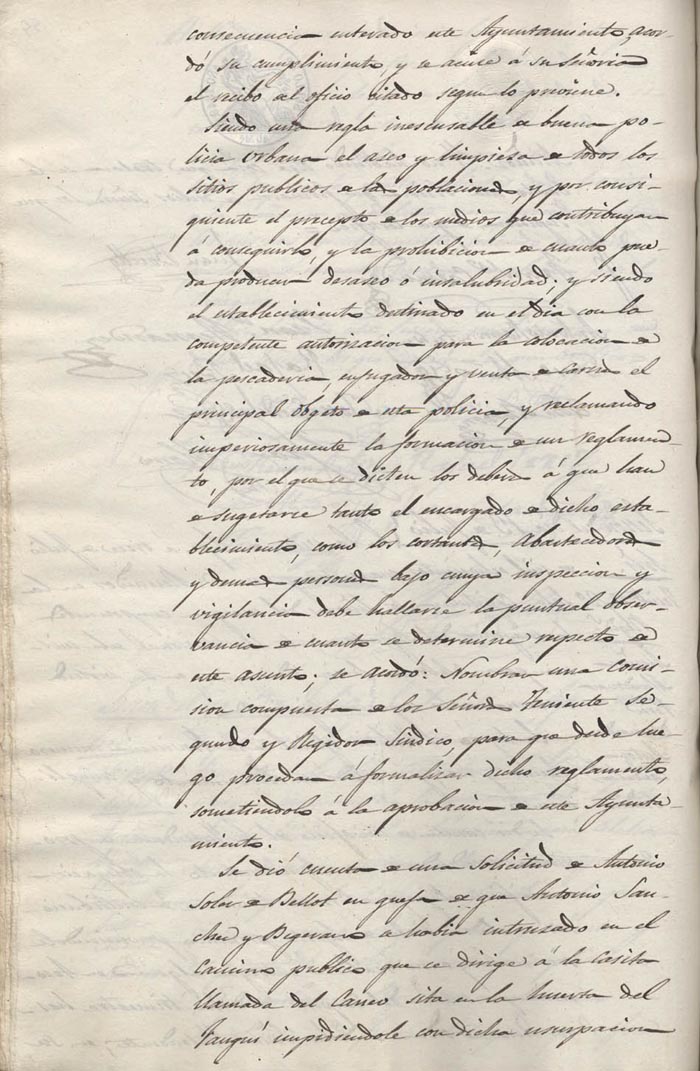 consecuencia enterado este Ayuntamiento, acor-
dó su cumplimiento y se acuse á su Señoria
el recibo del oficio citado segun lo previene.
Siendo una regla inescusable de buena po-
licia urbana el aseo y limpiesa de todos los
sitios publicos de las poblaciones, y por consi-
guiente el precepto de los medios que contribuyan
á conseguirlo, y la prohibicion de cuanto pue-
da producir desaseo ó insalubridad; y siendo
el establecimiento destinado en el dia con la
competente autorizacion para la colocacion de
la pescaderia, enjugador y venta de carnes el
principal objeto de esta policia, y reclamando
imperiosamente la formacion de un reglamen-
to, por el que se dicten los deberes á que han
de sugetarse tanto el encargado de dicho esta-
blecimiento, como los cortantes, Abastecedores
y demas personas bajo cuya inspeccion y
vigilancia debe hallarse la puntual obser-
vancia de cuanto se determine respecto de
este asunto; se acordó: Nombrar una Comi-
sion compuesta de los Señores Teniente Se-
gundo y Regidor Sindico, para que desde lue-
go procedan á formalizar dicho reglamento,
sometiendolo á la aprobacion de este Ayunta-
miento.
Se dió cuenta de una Solicitud de Antonio
Soler de Bellot en quefa de que Antonio San-
chez y Begerano se habia intrusado en el
Camino publico que se dirige á la Casita
llamada del Canco sita en la huerta del
impidiendole con dicha usurpacion